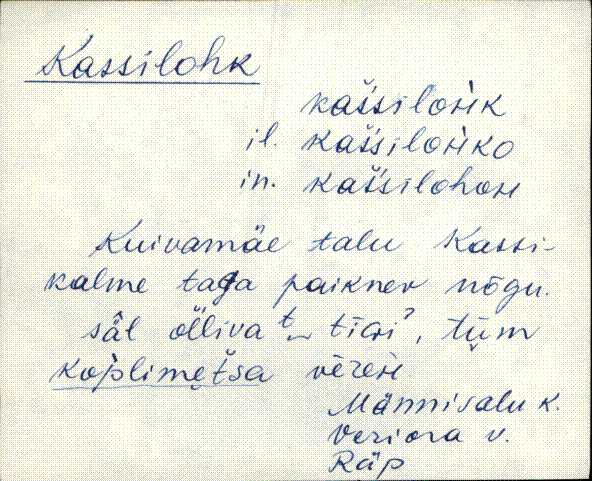 Kassilohk
kaššilohk
il. kaššilohko
in. kaššilohoн
Kuivamäe talu Kassi-
kalme taga paiknev nõgu.
säl õlliva tiɢi, tüm
koplimetsa vēreн
Männisalu k.
Veriora v.
Räp